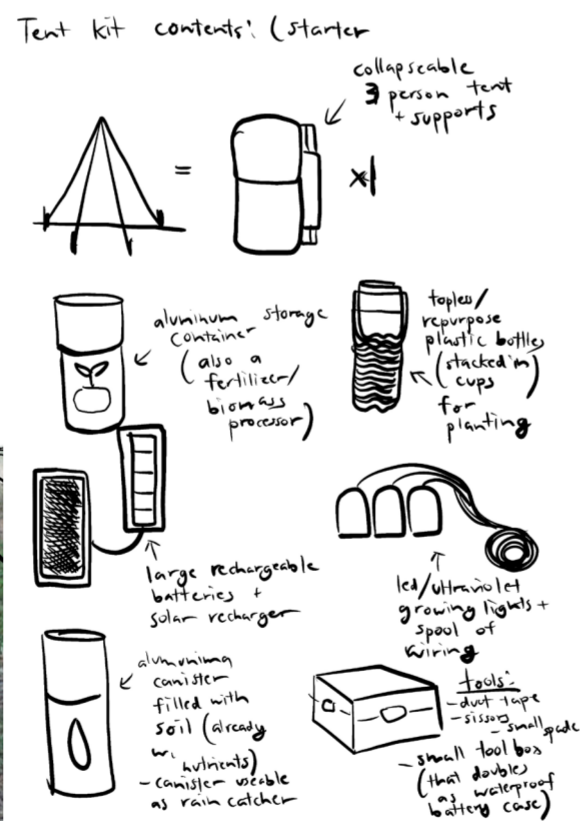 Tent kit contents: (starter
collapseable
3 person tent
+ supports
=
x1
aluminum storage
container
(also a
fertilizer/
biomass
processor)
topless/
repurpose
plastic bottles
(stacked in
cups)
for
planting
large rechargeable
batteries +
solar recharger
led/ultraviolet
growing lights +
spool of
wiring
alumunima
canister
filled with
soil (already
w,
nutrients)
- canister useable
as rain catcher
tools:
- duct tape
- sissors
- small spade
- small tool box
(that doubles
as waterproof
battery case)